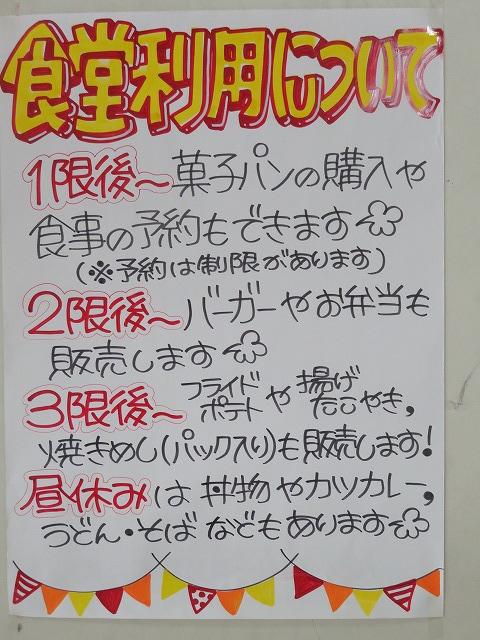 食堂利用について
1限後～菓子パンの購入や
食事の予約もできます
(※予約は制限があります)
2限後～バーガーやお弁当も
販売します
3限後～フライドポテトや揚げたこやき,
焼きめし(パック入り)も販売します!
昼休みは丼物やカツカレー,
うどん・そばなどもあります